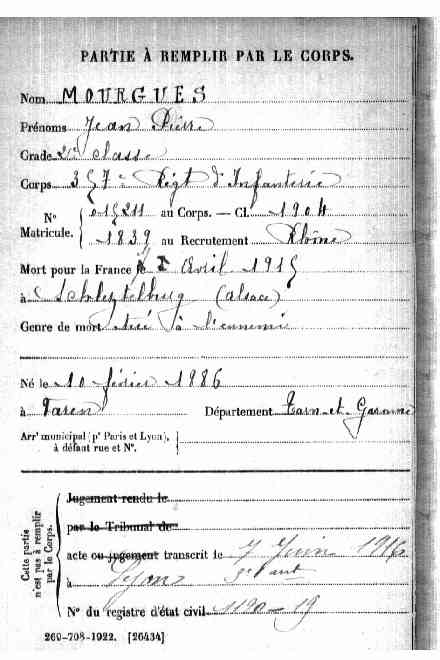 PARTIE À REMPLIR PAR LE CORPS.
Nom MOURGUES
Prénoms Jean Pierre
Grade 2e classe
Corps 357e Régt d'Infanterie
N° Matricule. 015211 au Corps. — Cl. 1904
1839 au Recrutement Rhône
Mort pour la France le Avril 1915
à (Alsace)
Genre de mort tué à l'ennemi
Né le 10 février 1886
à Département Tarn-et-Garonne
Arrt municipal (pr Paris et Lyon),
à défaut rue et N°.
Cette partie
n'est pas à remplir
par le Corps.
Jugement rendu le
par le Tribunal de
acte ou jugement transcrit le 7 Juin
à Lyon 3e arrt
N° du registre d'état civil 1190-19
260-708-1922. [26434]